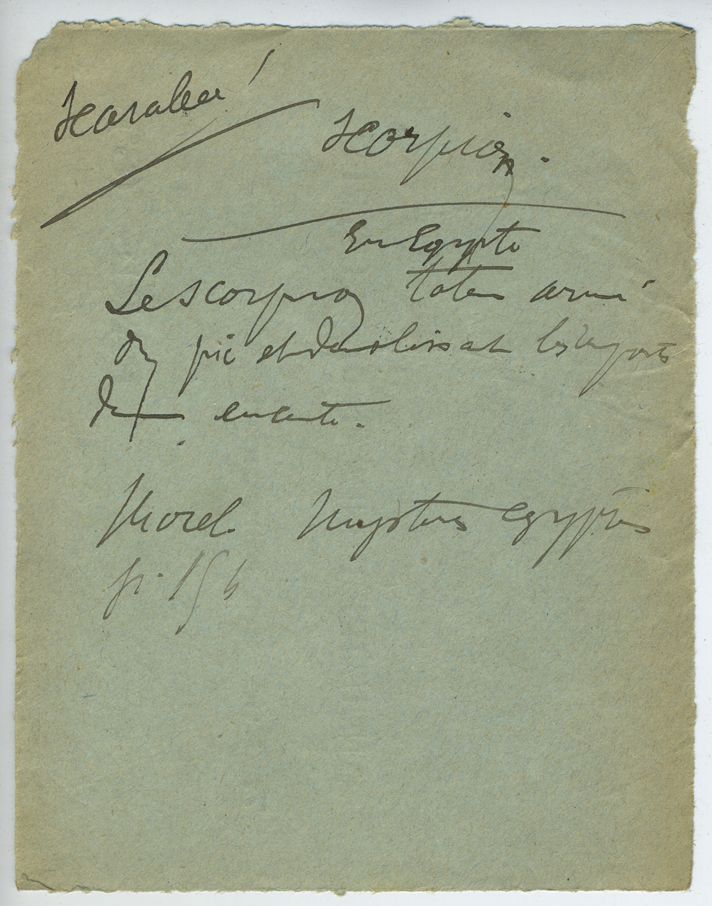 Scarabée
Scorpion.
En Egypte
Le scorpion totem armé
d'un pic et démolissant les
d'une enceinte.
Moret Mystères égyptiens
p. 156